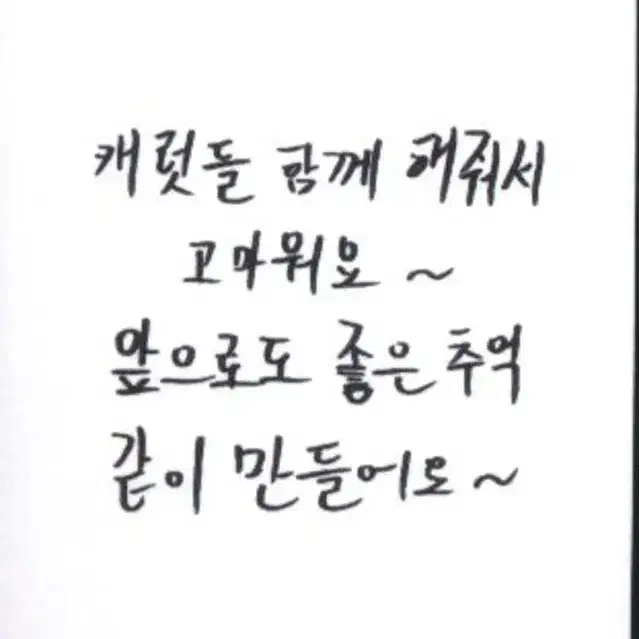 캐럿들 함께 해줘서
고마워요 ~
앞으로도 좋은 추억
같이 만들어요 ~